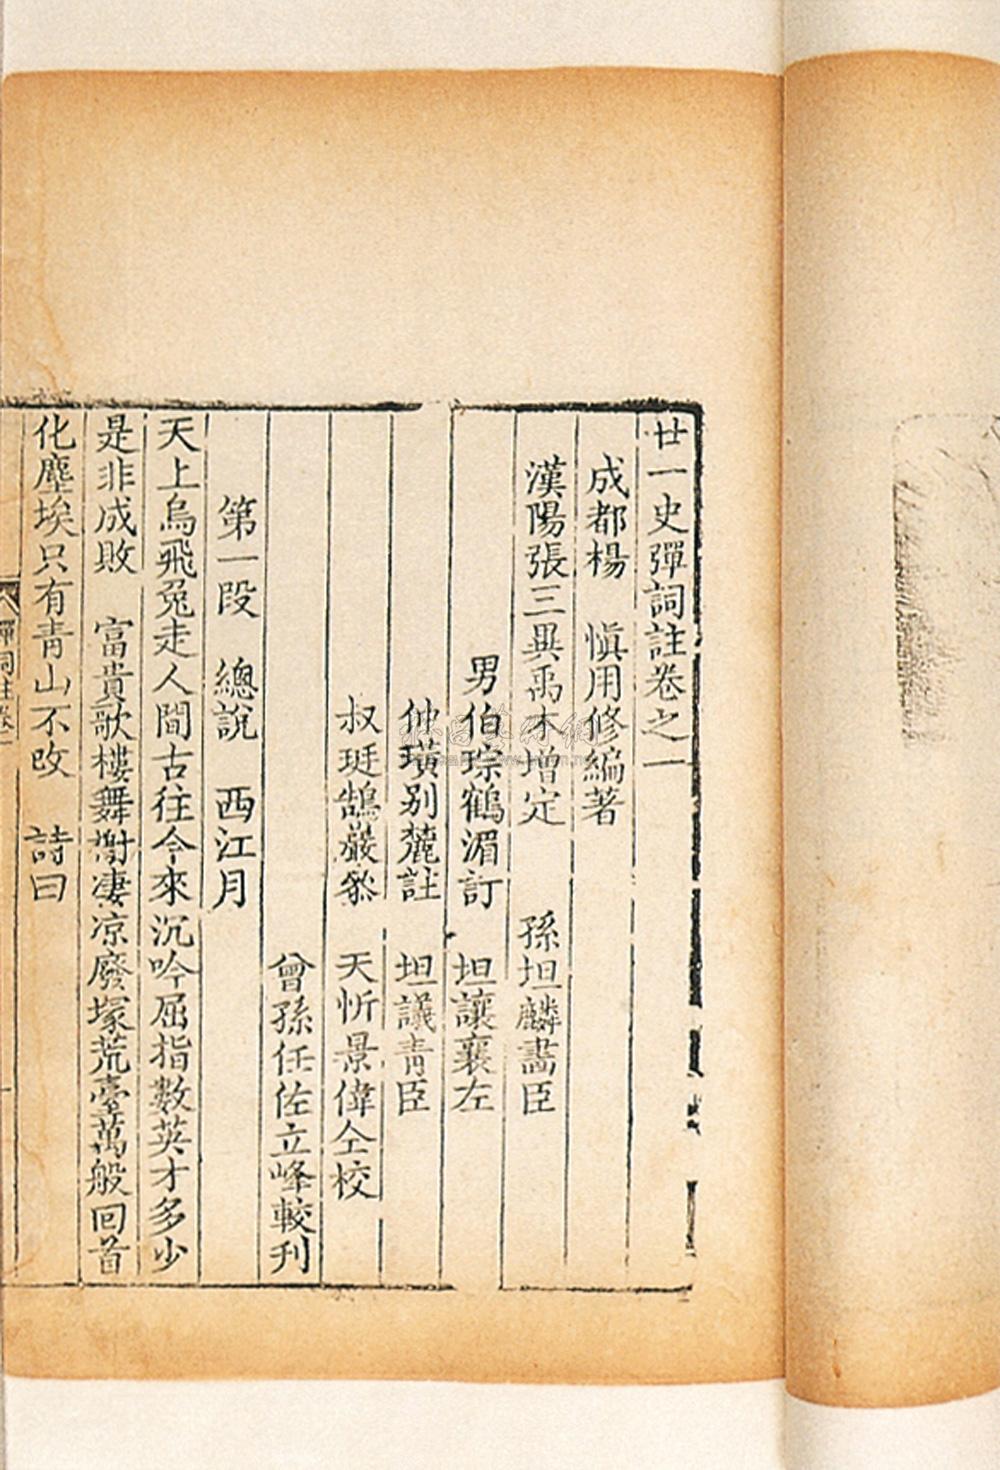 廿一史彈詞註卷之一
成都楊　慎用修編著
漢陽張三異禹木增定　孫坦麟書臣
男伯琮鶴湄訂　坦讓襄左
仲璜別麓註　坦議青臣
叔珽鵠巖叅　天忻景偉仝校
曾孫任佐立峰較刊
第一段　總說　西江月
天上烏飛兔走人間古往今來沉吟屈指數英才多少
是非成敗　富貴歌樓舞榭凄凉廢塚荒臺萬般回首
化塵埃只有青山不改　詩曰
彈詞註卷一